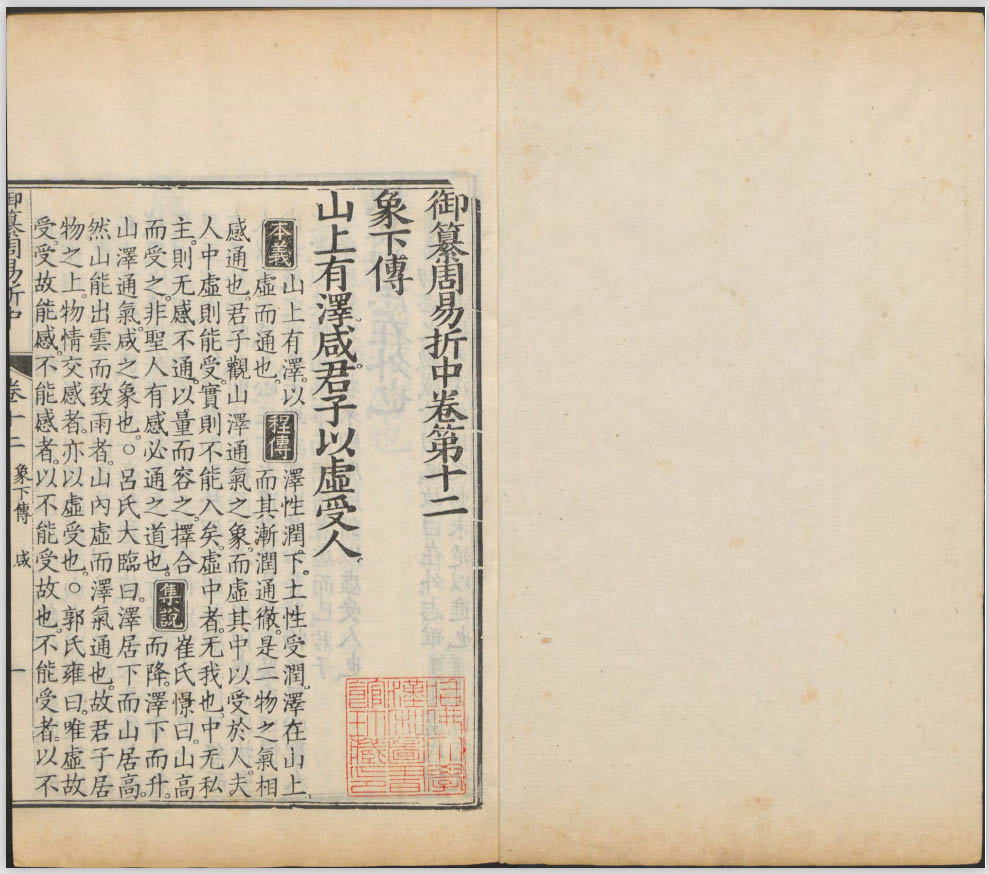 御纂周易折中卷第十二
象下傳
山上有澤咸。君子以虛受人。
本義
山上有澤。以
虛而通也。
程傳
澤性潤下。土性受潤。澤在山上
而其漸潤通徹。是二物之氣相
感通也。君子觀山澤通氣之象。而虛其中以受於人。夫
人中虛則能受。實則不能入矣。虛中者。无我也。中无私
主。則无感不通。以量而容之。擇合
而受之。非聖人有感必通之道也。
集說
崔氏憬曰。山高
而降。澤下而升。
山澤通氣。咸之象也。○呂氏大臨曰。澤居下而山居高。
然山能出雲而致雨者。山內虛而澤氣通也。故君子居
物之上。物情交感者。亦以虛受也。○郭氏雍曰。唯虛故
受。受故能感。不能感者。以不能受故也。不能受者。以不
御纂周易折中 卷十二 象下傳 咸 一
哈佛大學漢和圖書館珍藏印